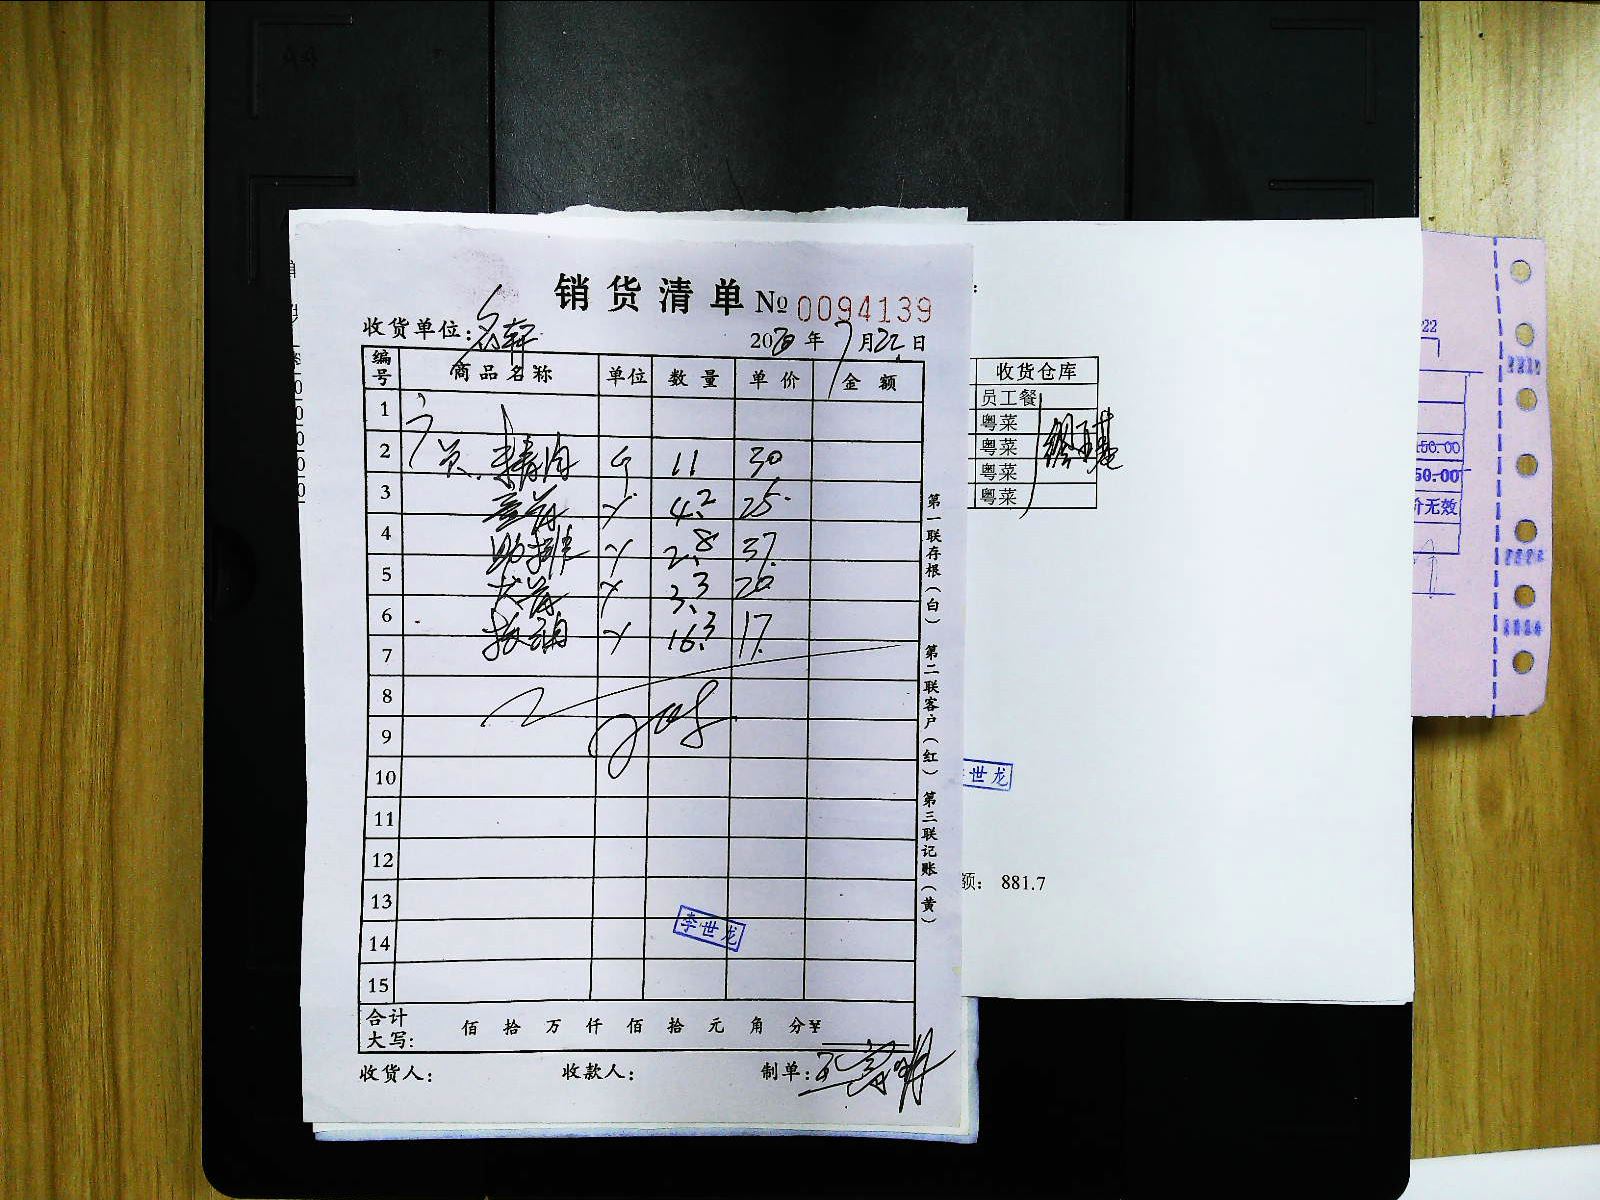 销货清单 № 0094139
收货单位:名轩 2020年7月22日
编号 商品名称 单位 数量 单价 金额
1
2 精肉 斤 11 30
3 4.2 25.
4 助排 2.8 37.
5 3.3 20
6 16.3 17.
7
8
9
10
11
12
13
14
15
李世龙
合计大写: 佰 拾 万 仟 佰 拾 元 角 分¥
收货人: 收款人: 制单:
第一联存根(白) 第二联客户(红) 第三联记账(黄)
收货仓库
员工餐
粤菜
粤菜
粤菜
粤菜
世龙
额: 881.7
22
150.00
50.00
价无效